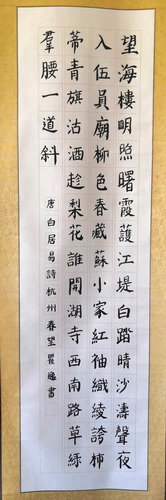 望海樓明照曙霞護江堤白踏晴沙濤聲夜
入伍員廟柳色春藏蘇小家紅袖織綾誇柿
蒂青旗沽酒趁梨花誰開湖寺西南路草綠
裙腰一道斜
唐白居易詩杭州春望瞿逸書